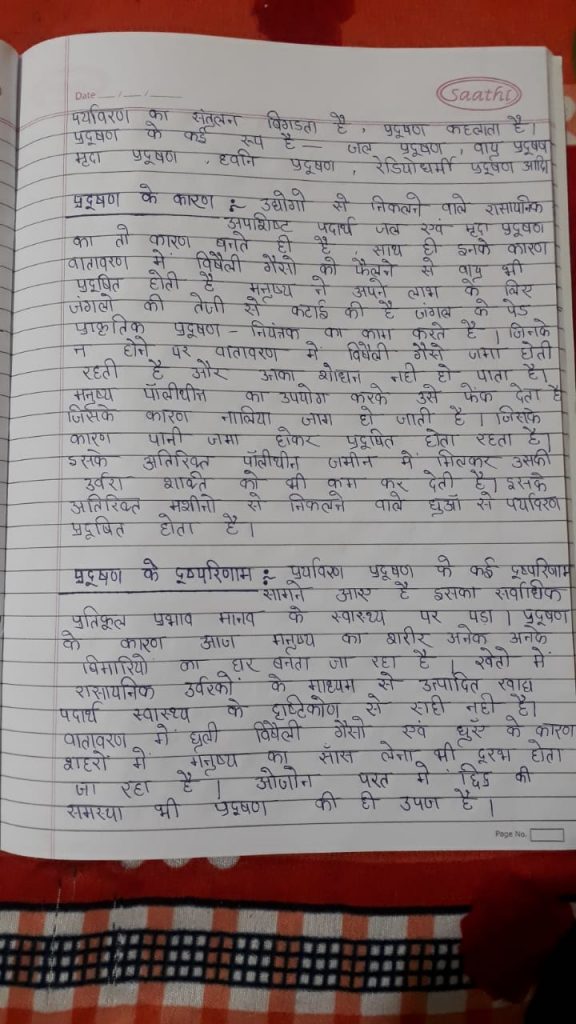 Date __/__/__
Saathi
पर्यावरण का संतुलन बिगडता है, प्रदूषण कहलाता है।
प्रदूषण के कई रूप है — जल प्रदूषण, वायु प्रदूषण
मृदा प्रदूषण, ध्वनि प्रदूषण, रेडियोधर्मी प्रदूषण आदि
प्रदूषण के कारण :- उद्योगो से निकलने वाले रासायनिक
अपशिष्ट पदार्थ जल एवं मृदा प्रदूषण
का तो कारण बनते ही है, साथ ही इनके कारण
वातावरण में विषैली गैसो को फैलने से वायु भी
प्रदूषित होती है मनुष्य ने अपने लाभ के लिए
जंगलो की तेजी से कटाई की है जंगल के पेड
प्राकृतिक प्रदूषण - नियंत्रक का काम करते है। जिनके
न होने पर वातावरण में विषैली गैसे जमा होती
रहती है और शोधन नही हो पाता है।
मनुष्य पॉलीथीन का उपयोग करके उसे फेंक देता है
जिसके कारण नालिया जाम हो जाती है। जिसके
कारण पानी जमा होकर प्रदूषित होता रहता है।
इसके अतिरिक्त पॉलीथीन जमीन में मिलकर उसकी
उर्वरा शक्ति को भी कम कर देती है। इसके
अतिरिक्त मशीनो से निकलने वाले धुआँ से पर्यावरण
प्रदूषित होता है।
प्रदूषण के दूष्परिणाम :- पर्यावरण प्रदूषण के कई दूष्परिणाम
सामने आए है इसका सर्वाधिक
प्रतिकूल प्रभाव मानव के स्वास्थ्य पर पडा। प्रदूषण
के कारण आज मनुष्य का शरीर अनेक अनेक
बिमारियों का घर बनता जा रहा है। खेतो में
रासायनिक उर्वरकों के माध्यम से उत्पादित खाद्य
पदार्थ स्वास्थ्य के दृष्टिकोण से सही नही है।
वातावरण में घुली विषैली गैसो एवं धुएँ के कारण
शहरों में मनुष्य का साँस लेना भी दूरभ होता
जा रहा है। ओजोन परत में छिद्र की
समस्या भी प्रदूषण की ही उपज है।
Page No.